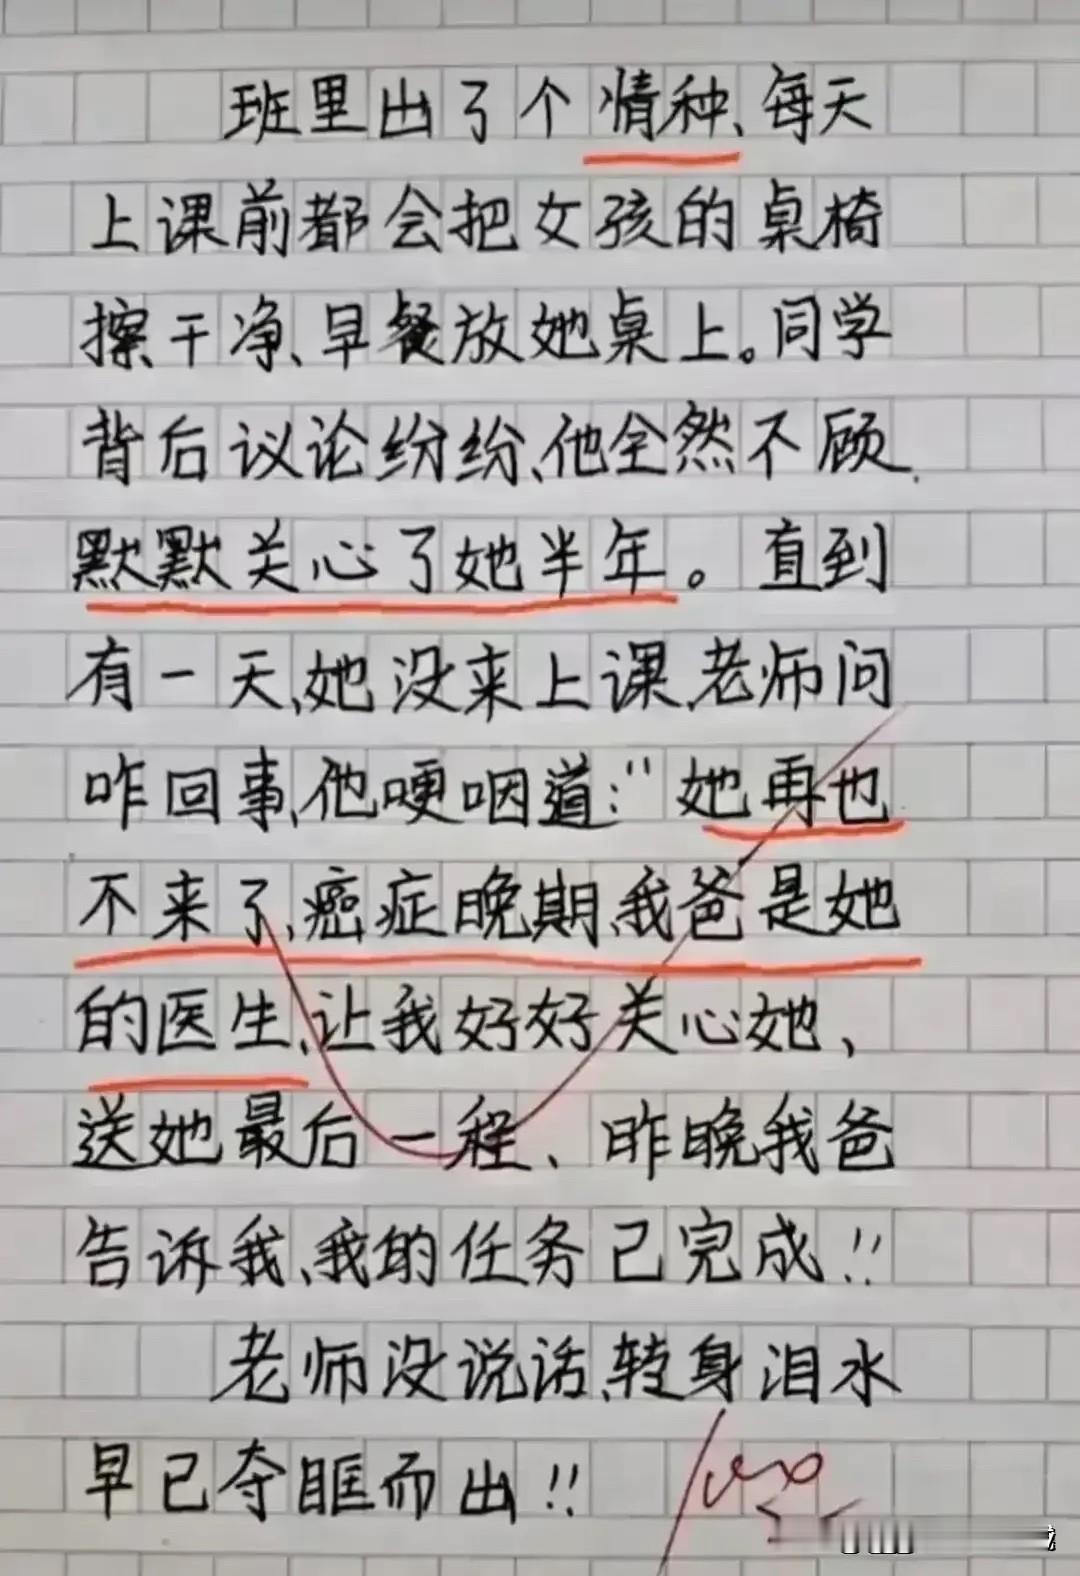 班里出了个情种、每天
上课前都会把女孩的桌椅
擦干净、早餐放她桌上。同学
背后议论纷纷、他全然不顾、
默默关心了她半年。直到
有一天、她没来上课、老师问
咋回事、他哽咽道:"她再也
不来了、癌症晚期、我爸是她
的医生、让我好好关心她,
送她最后一程、昨晚我爸
告诉我、我的任务已完成!!
老师没说话、转身泪水
早已夺眶而出!!